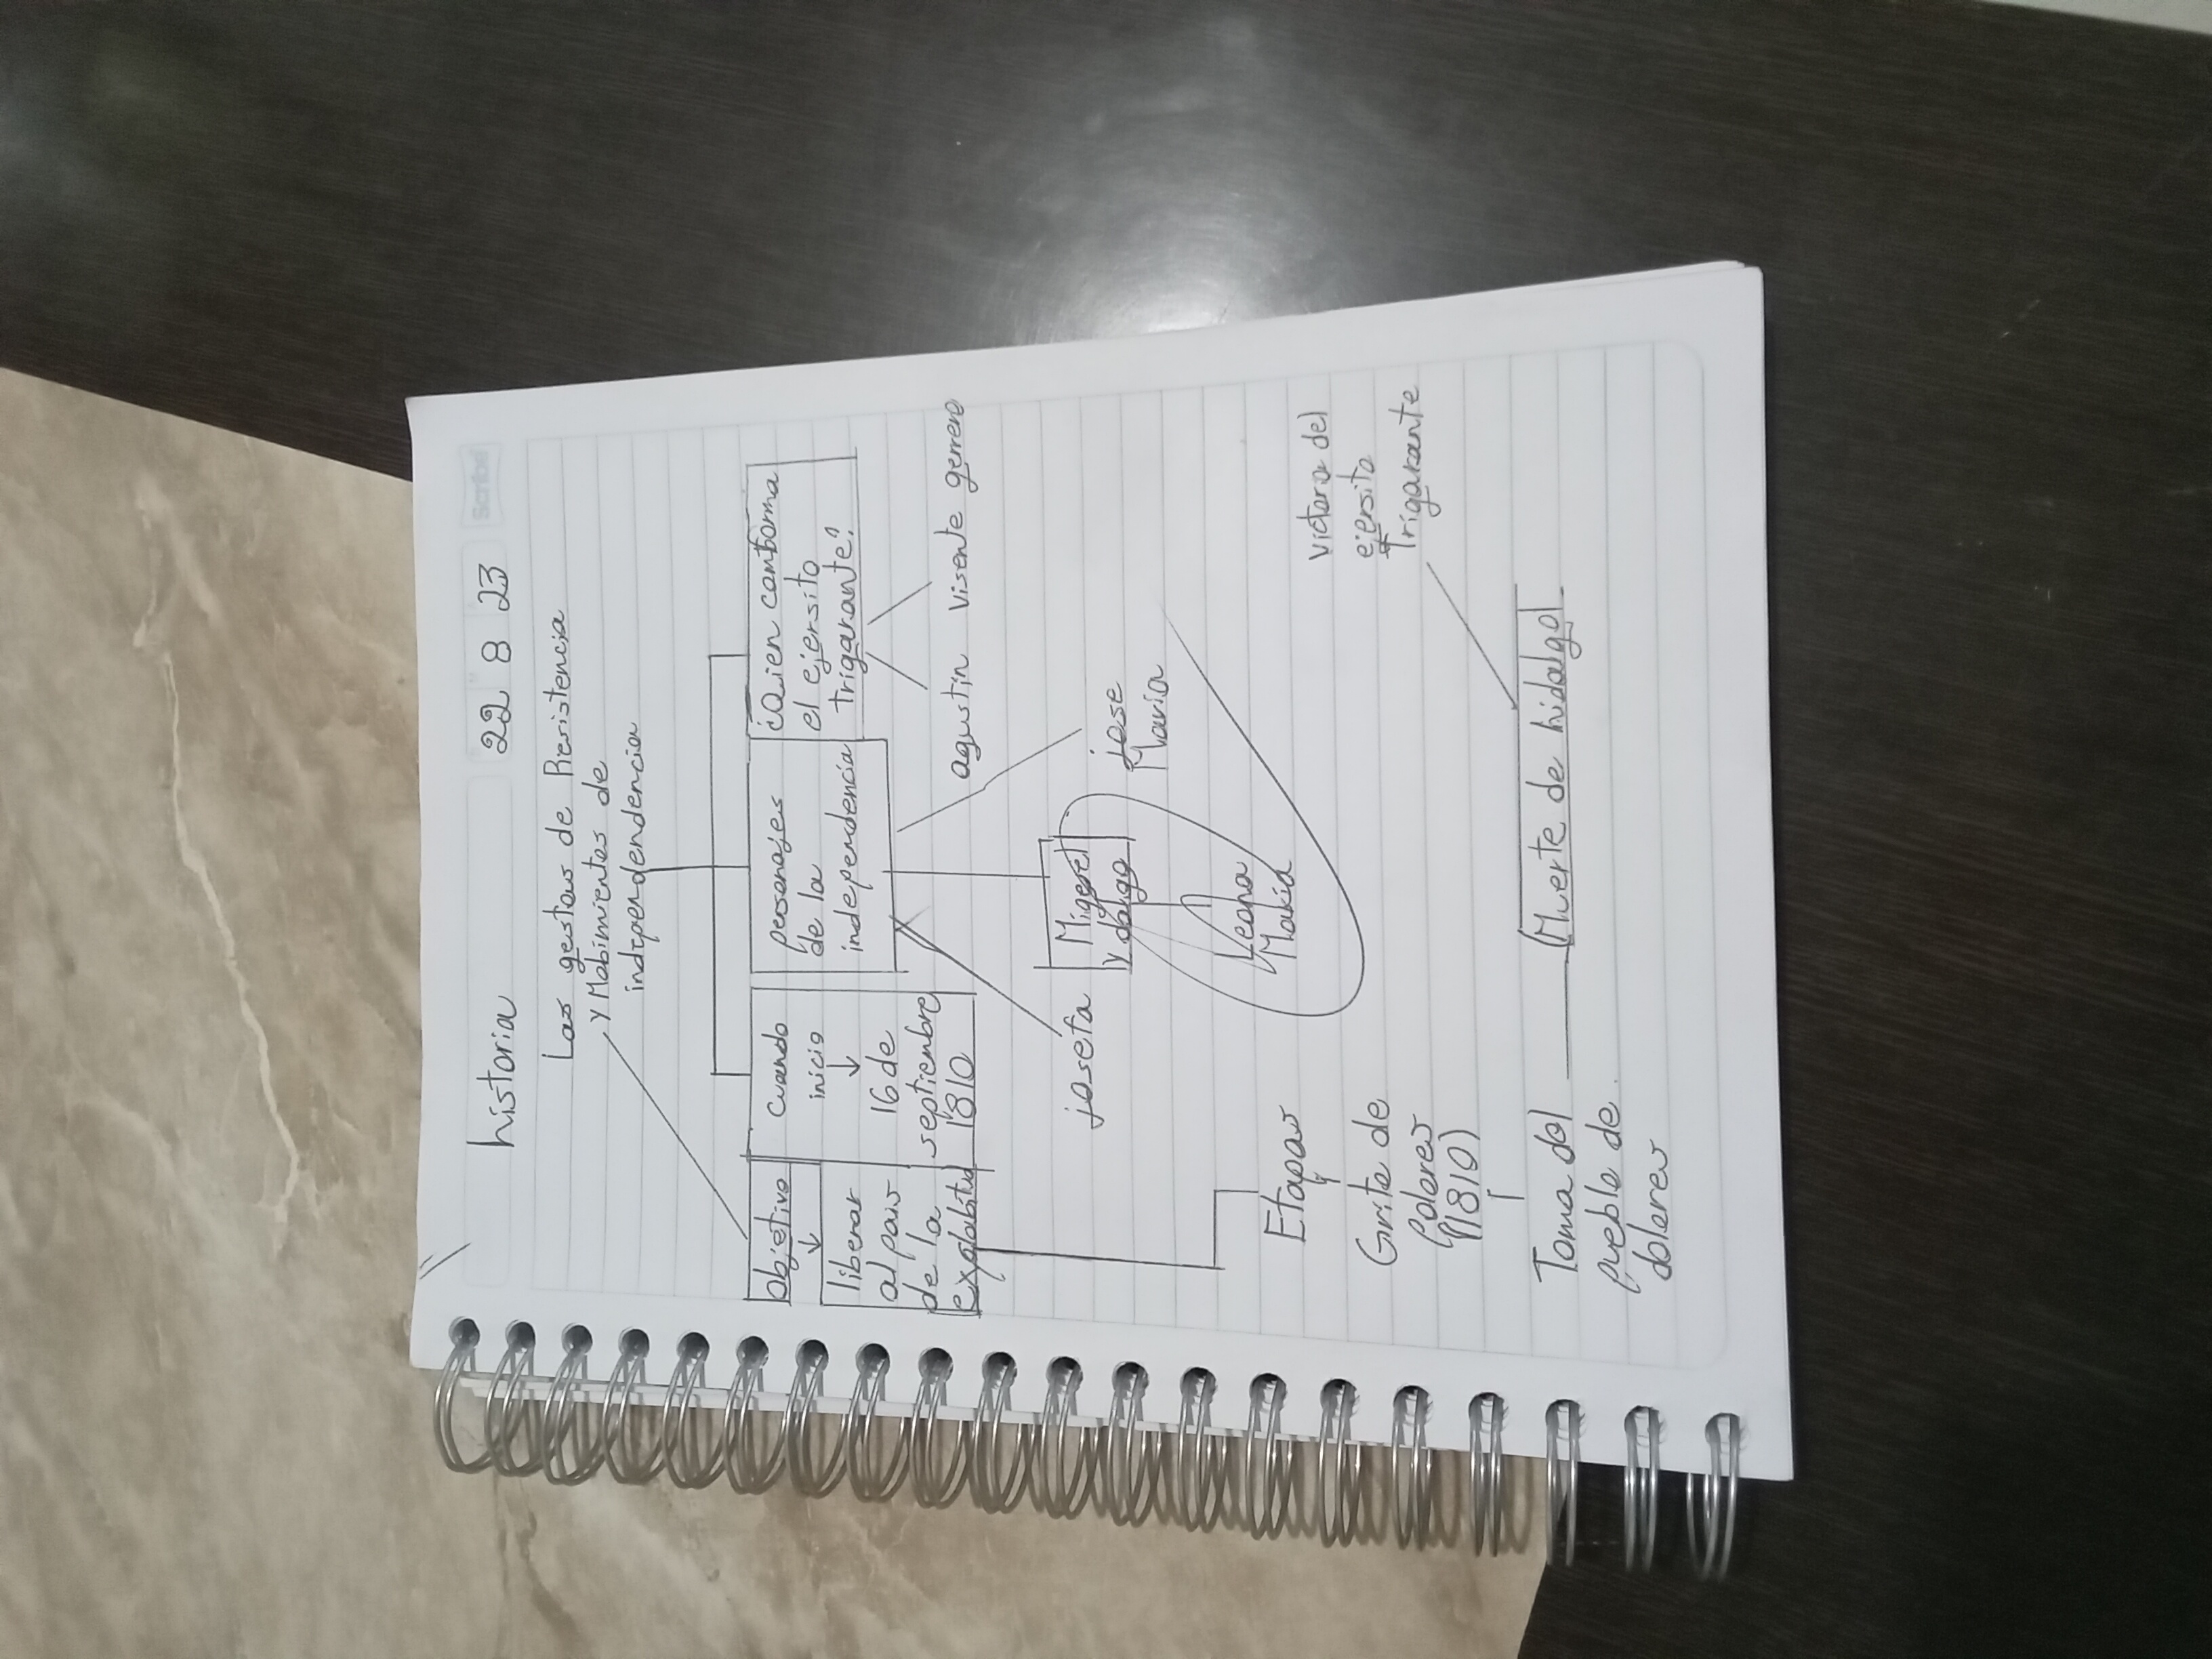 Scribe
historia 22 8 23
Las gestas de Resistencia
y Mobimientos de
indrependendencia
objetivo
liberar
al pais
de la
explabitud
cuando
inicio
16 de
septiembre
1810
personajes
de la
independencia
¿Quien comforma
el ejersito
trigarante?
agustin visente gerrero
josefa
Migeel
y dalgo
jose
Maria
Leona
Maria
Etapas
Grito de
Dolores
(1810)
Toma del
pueblo de
dolores
Muerte de hidalgo
Victora del
ejersito
Trigarante